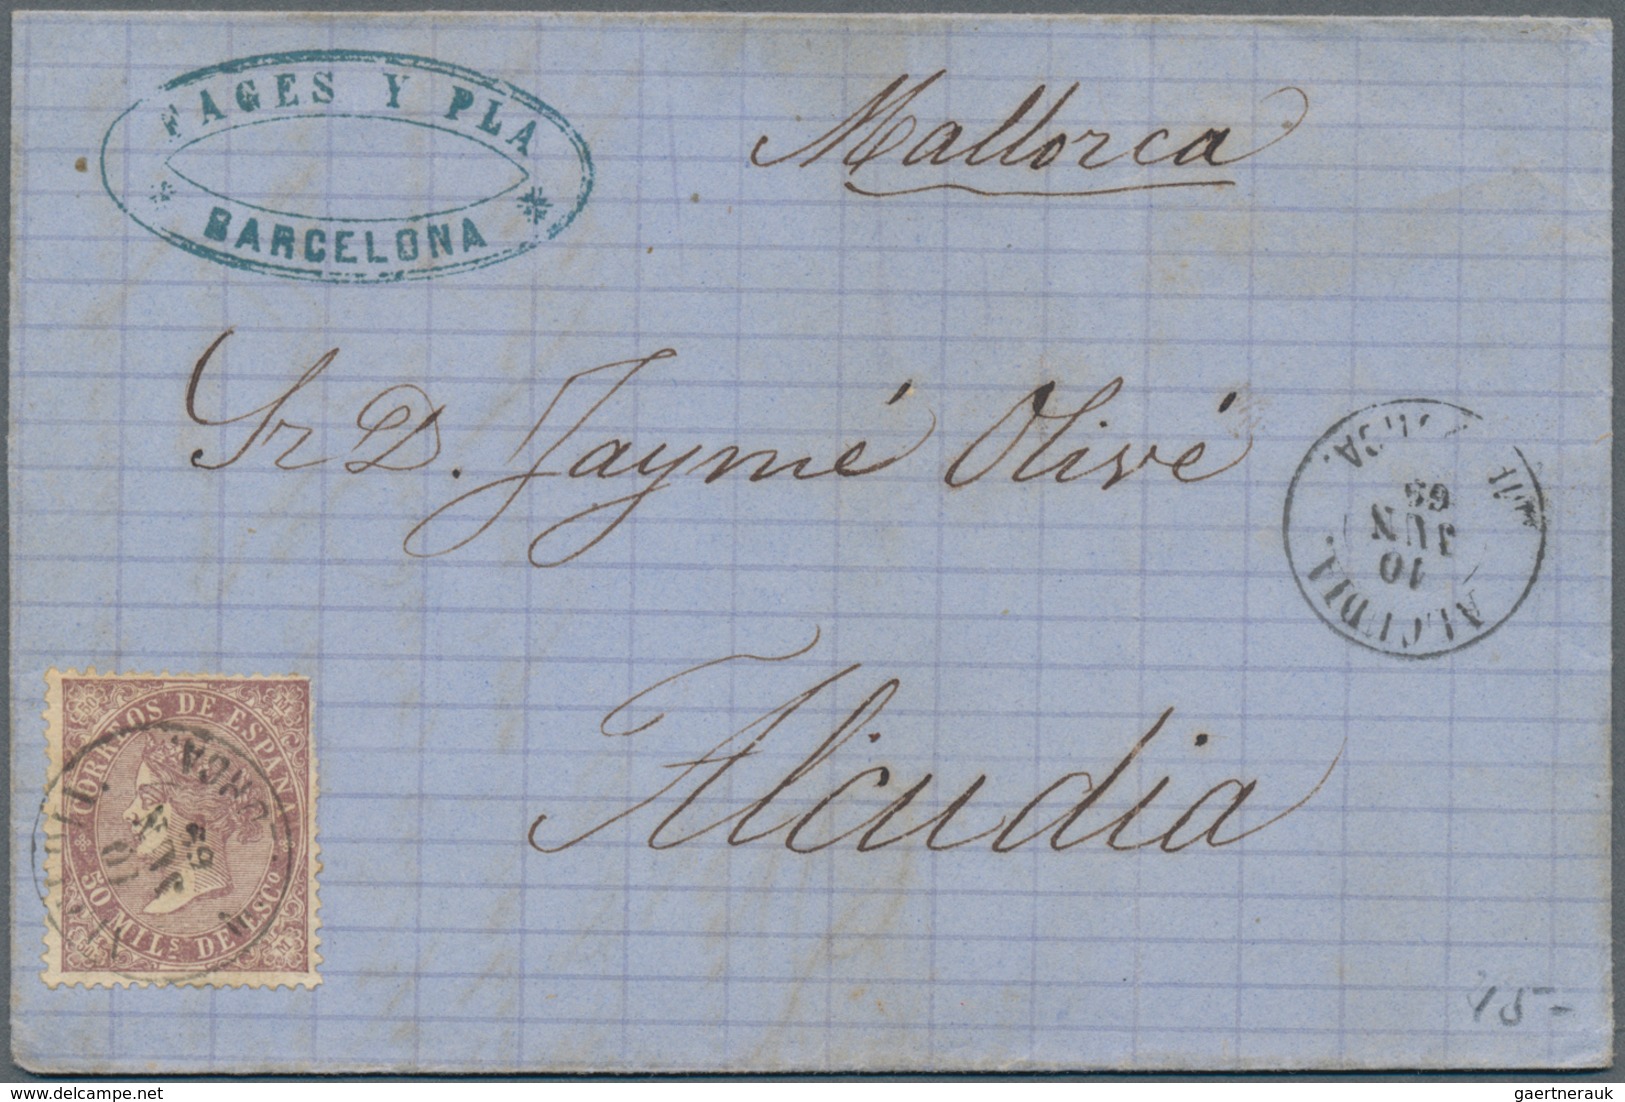 FAGES Y PLA
BARCELONA
Mallorca
Sr D. Jaymé Olivé
Alcudia
ALCUDIA.
10
JUN
69
CORREOS DE ESPAÑA
50 MILS DE ESCO.
10
JUN
69
15-
delcampe.net
gaertnerauk